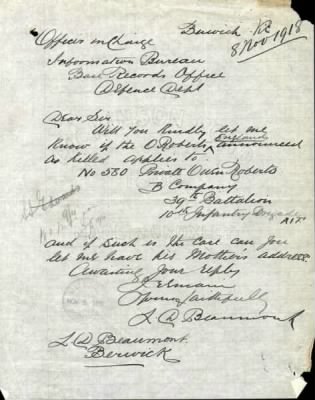 Berwick Vic
8 Nov 1918
Officer in Charge
Information Bureau
Base Records Office
Defence Dept
Dear Sir
Will you kindly let me
know if the O Roberts, England announced
as killed applies to.
No 580 Private Owen Roberts
B Company
39th Battalion
10th Infantry Brigade
A.I.F
and if such is the case can you
let me have his Mother's address
Awaiting your reply
I remain
Yours faithfully
L. D Beaumont
L. D Beaumont.
Berwick